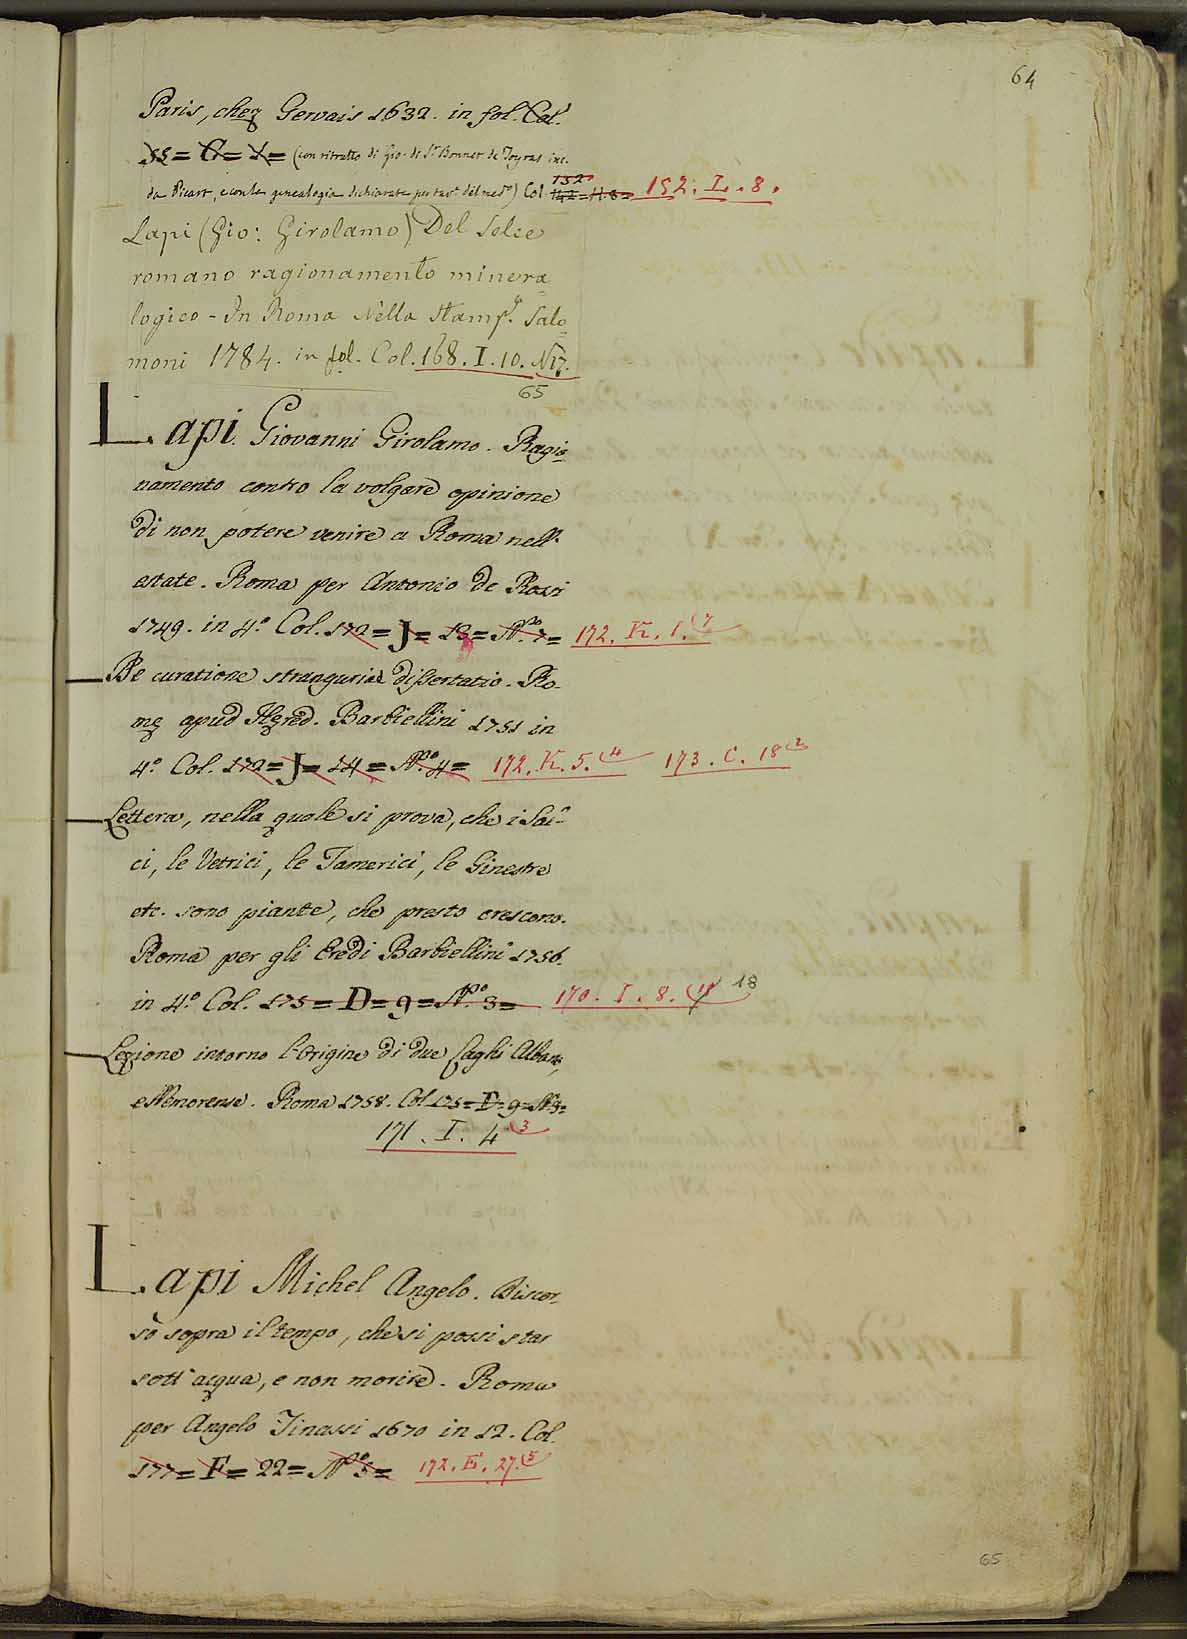 64
Paris, chez Gervais 1632. in fol. Col.
55 = G = 1 = (con ritratto di Gio. di S.r Bonnet de Toyras inc.
da Picart, e con la genealogia dichiarata per tav.e del med.o) Col. 152 142 = H. 8 = 152. L. 8.
Lapi (Gio: Girolamo) Del Selce
romano ragionamento minera=
logico - In Roma Nella Stamp.a Salo=
moni 1784. in fol. Col. 168. I. 10. N 17.
65
Lapi Giovanni Girolamo. Ragio=
namento contro la volgare opinione
di non potere venire a Roma nell'
estate. Roma per Antonio de Rossi
1749. in 4.o Col. 172 = J = 13 = N.o 7 = 172. K. 1. (7
— De curatione stranguriae dissertatio. Ro-
mę apud Hęred. Barbiellini 1751 in
4.o Col. 172 = J = 14 = N.o 4 = 172. K. 5. (4 173. C. 18 (2
— Lettera, nella quale si prova, che i Sal-
ci, le Vetrici, le Tamerici, le Ginestre
etc. sono piante, che presto crescono.
Roma per gli Eredi Barbiellini 1756.
in 4.o Col. 175 = D = 9 = N.o 3 = 170. I. 8. 18
— Lezione intorno l'Origine di due Laghi Albano,
e Nemorense. Roma 1758. Col. 175 = D = 9 = N. 3 =
171. I. 4 (3
Lapi Michel Angelo. Discor-
so sopra il tempo, che si possi star
sott'acqua, e non morire. Roma
per Angelo Tinassi 1670 in 12. Col.
177 = F = 22 = N.o 5 = 172. E. 27. (5
65